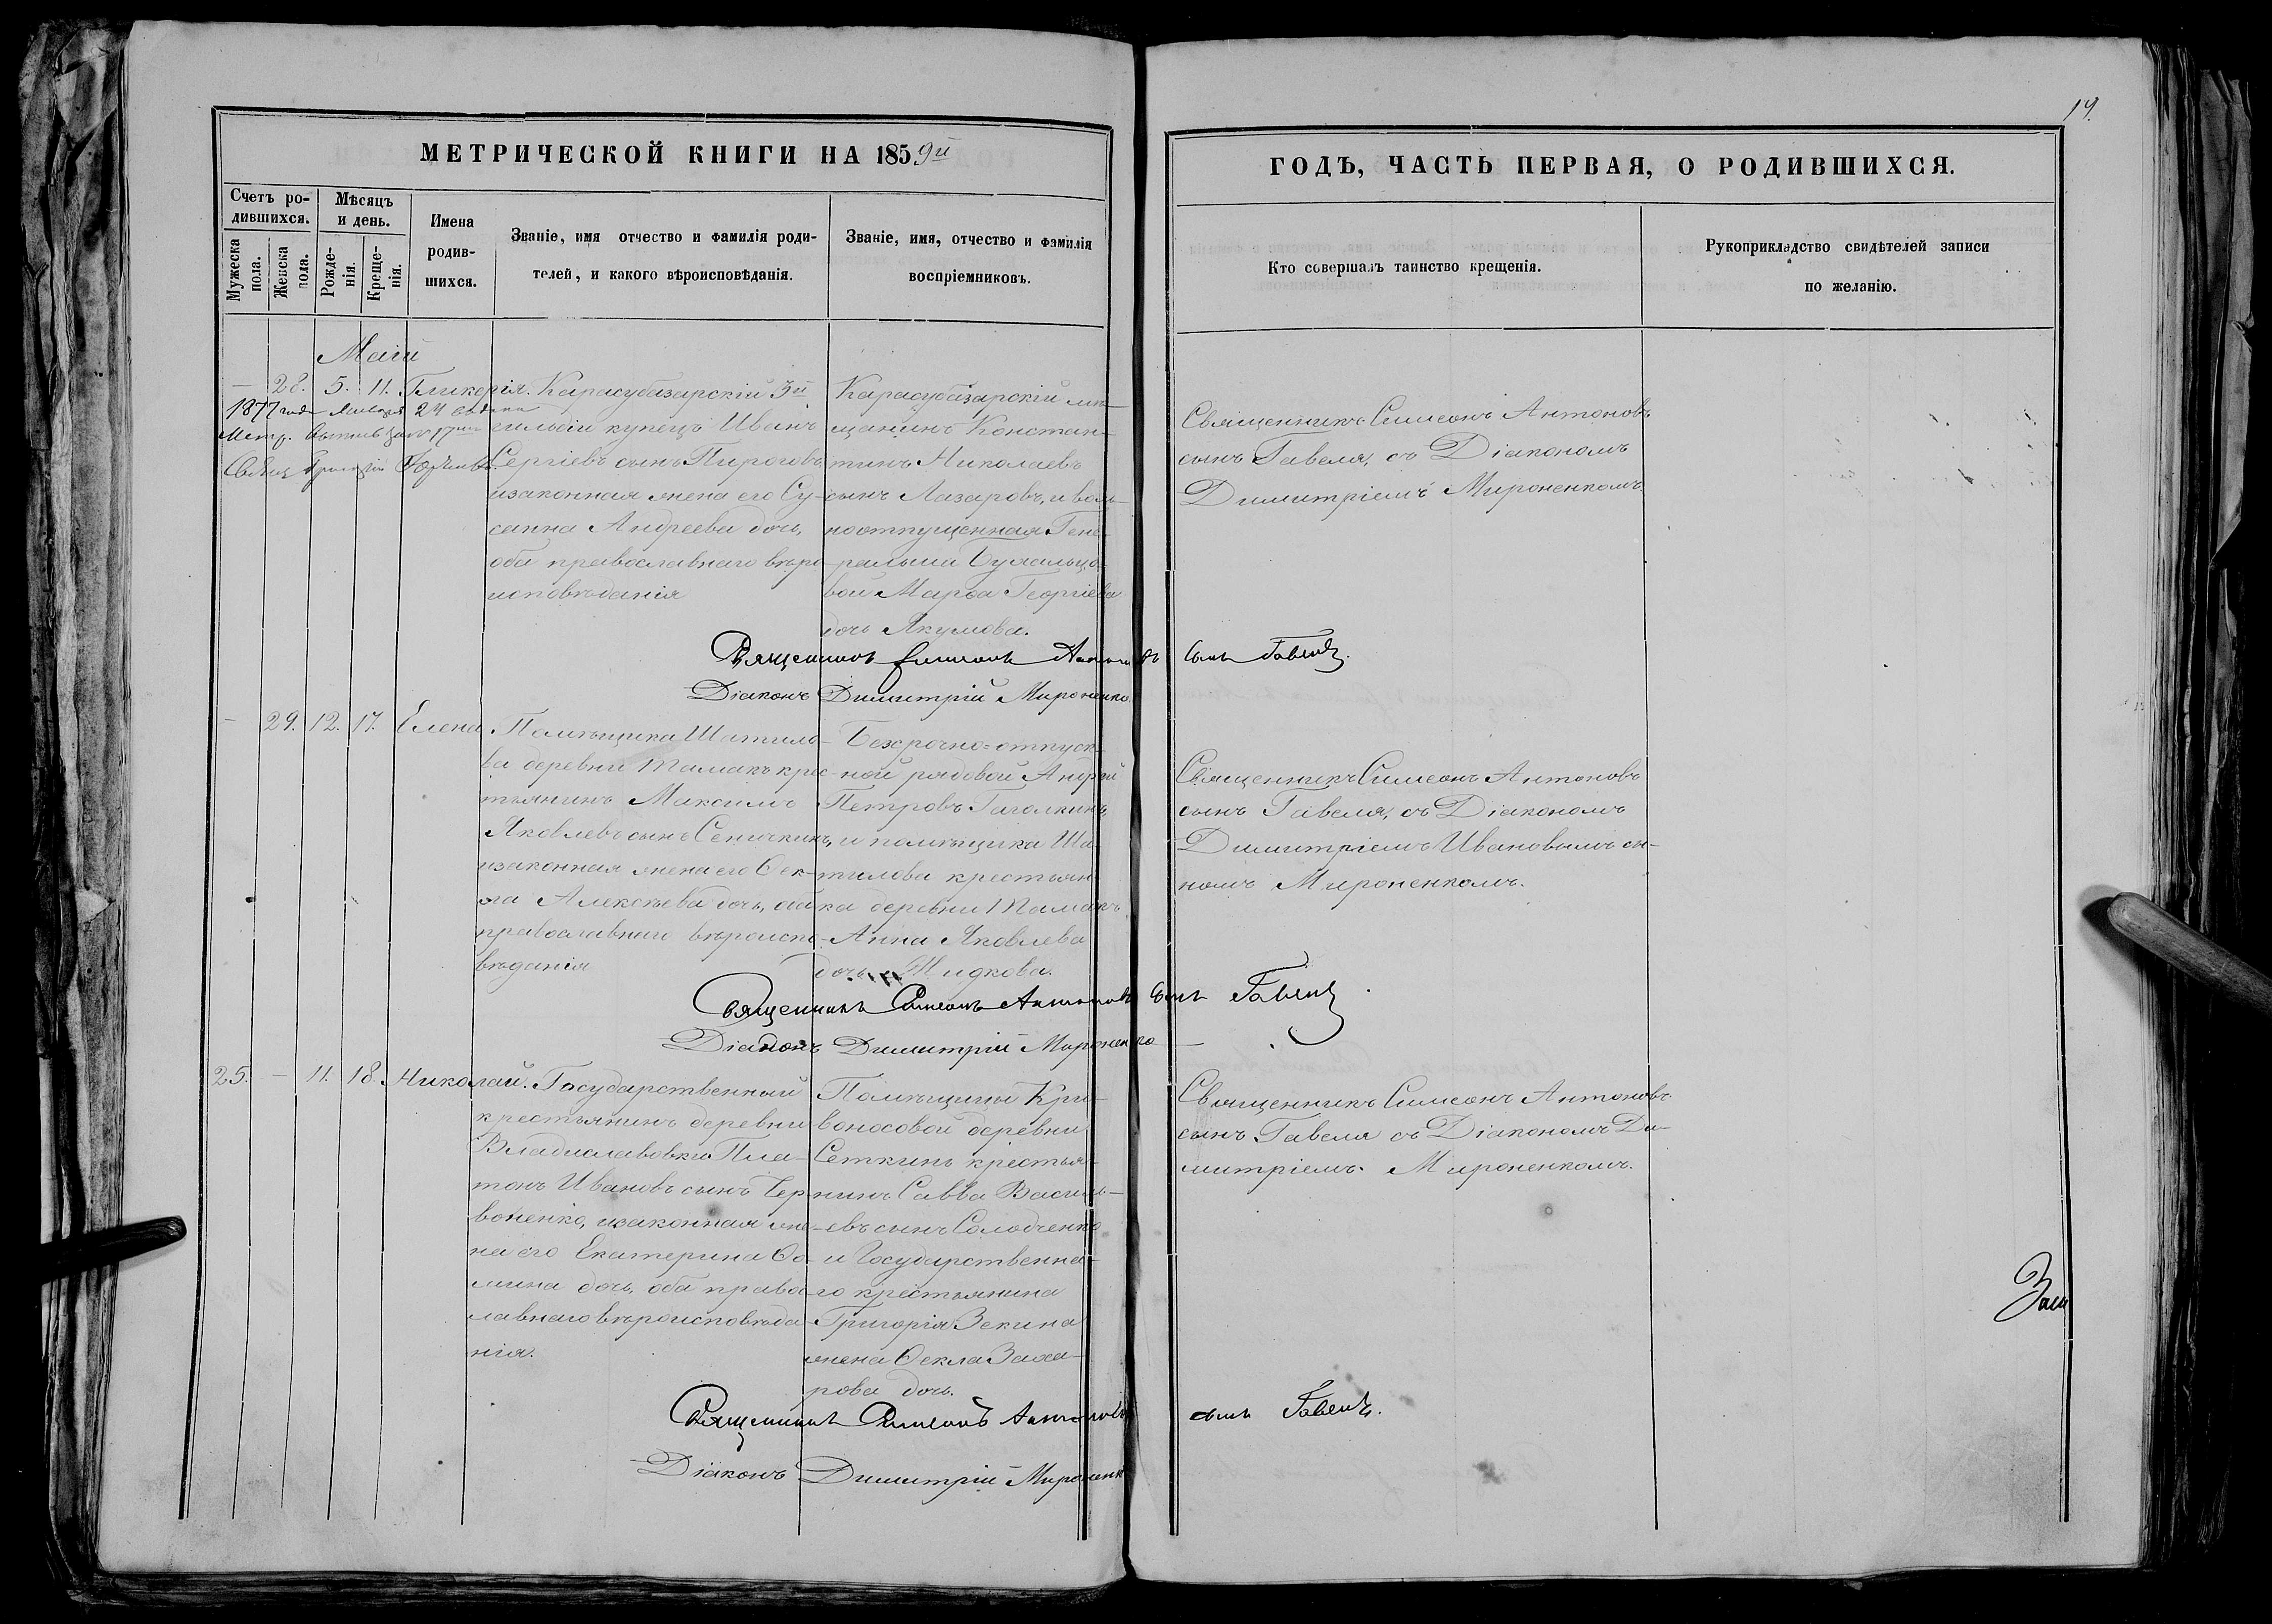 19.
МЕТРИЧЕСКОЙ КНИГИ НА 1859й
ГОДЪ, ЧАСТЬ ПЕРВАЯ, О РОДИВШИХСЯ.
Счетъ ро-
дившихся.
Мужеска
пола.
Женска
пола.
Мѣсяцъ
и день.
Рожде-
нія.
Креще-
нія.
Имена
родив-
шихся.
Званіе, имя отчество и фамилія роди-
телей, и какого вѣроисповѣданія.
Званіе, имя, отчество и фамилія
воспріемниковъ.
Кто совершалъ таинство крещенія.
Рукоприкладство свидѣтелей записи
по желанію.
Маій
— 28. 5. 11. Гликерія.
1877 года Января 24
Метр.
Карасубазарскій 3й
гильдіи купецъ Иванъ
Сергіевъ сынъ Пироговъ
и законная жена его Су-
санна Андреева дочь,
оба православнаго вѣро-
исповѣданія
Карасубазарскій мѣ-
щанинъ Констан-
тинъ Николаевъ
сынъ Лазаровъ, и воль-
ноотпущенная Гене-
ральши
вой Марѳа Георгіева
дочь Якумова.
Священникъ Симеонъ Антоновъ
сынъ Гавеля, съ Діакономъ
Димитріемъ Мироненкомъ.
Священникъ Симеонъ Антоновъ сынъ Гавеля.
Діаконъ Димитрій Мироненко
— 29. 12. 17. Елена
Помѣщика Шатило-
ва деревни Тамакъ крес-
тьянинъ Максимъ
Яковлевъ сынъ Сеничкинъ,
и законная жена его Ѳек-
ла Алексѣева дочь, оба
православнаго вѣроиспо-
вѣданія
Безсрочно-отпуск-
ной рядовой Андрей
Петровъ Гаголкинъ,
и помѣщика Ша-
тилова крестьян-
ка деревни Тамакъ
Анна Яковлева
дочь Жидкова.
Священникъ Симеонъ Антоновъ
сынъ Гавеля, съ Діакономъ
Димитріемъ Ивановымъ сы-
номъ Мироненкомъ.
Священникъ Симеонъ Антоновъ сынъ Гавеля.
Діаконъ Димитрій Мироненко
25. — 11. 18. Николай.
Государственный
крестьянинъ деревни
Владиславовки Пла-
тонъ Ивановъ сынъ Чер-
воненко, и законная же-
на его Екатерина Ѳо-
мина дочь, оба правос-
лавнаго вѣроисповѣда-
нія.
Помѣщицы Кри-
воносовой деревни
Сеткинъ крестья-
нинъ Савва Василь-
евъ сынъ Солодченко
и Государственна-
го крестьянина
Григорія Зекина
жена Ѳекла Заха-
рова дочь.
Священникъ Симеонъ Антоновъ
сынъ Гавеля съ Діакономъ Ди-
митріемъ Мироненкомъ.
Священникъ Симеонъ Антоновъ сынъ Гавеля.
Діаконъ Димитрій Мироненко